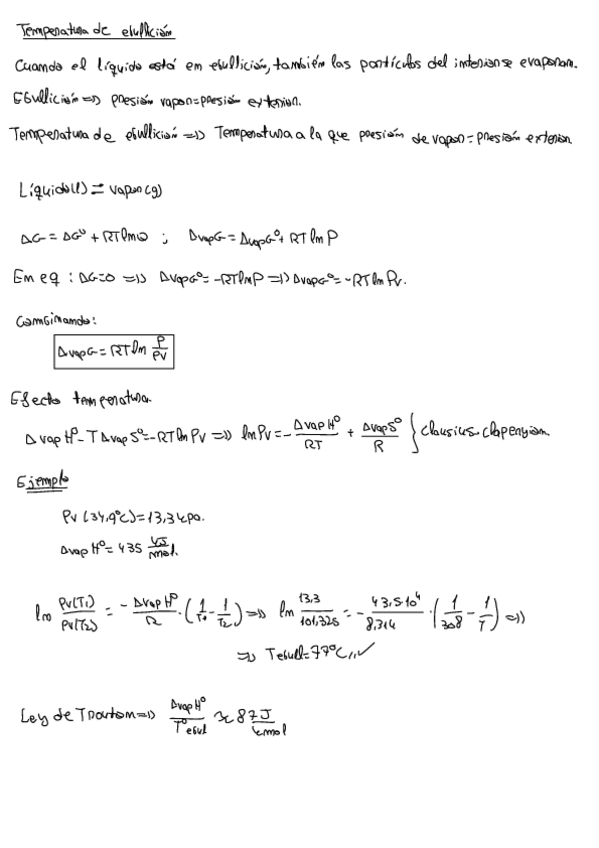 Temperatura de ebullición
Cuando el líquido está en ebullición, también las partículas del interior se evaporan.
Ebullición => presión vapor = presión exterior.
Temperatura de ebullición => Temperatura a la que presión de vapor = presión exterior
Líquido(l) ⇌ vapor(g)
ΔG = ΔG⁰ + RT ln Q ; ΔvapG = ΔvapG⁰ + RT ln P
En eq : ΔG=0 => ΔvapG⁰ = -RT ln P => ΔvapG⁰ = -RT ln Pv.
Combinando:
ΔvapG = RT ln P/Pv
Efecto temperatura.
ΔvapH⁰ - TΔvapS⁰ = -RT ln Pv => ln Pv = - ΔvapH⁰/RT + ΔvapS⁰/R } Clausius-Clapeyron
Ejemplo
Pv (34,9ºC) = 13,3 kPa.
ΔvapH⁰ = 43,5 kJ/mol.
ln Pv(T₁)/Pv(T₂) = - ΔvapH⁰/R · (1/T₁ - 1/T₂) => ln 13,3/101,325 = - 43,5·10⁴/8,314 · (1/308 - 1/T) =>
=> Tebull = 77ºC,, ✓
Ley de Trouton => ΔvapH⁰/T⁰ebul ≈ 87 J/kmol